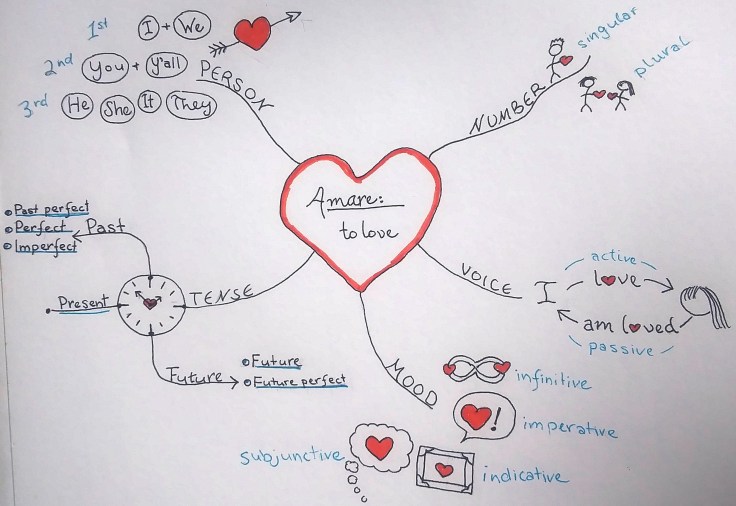 1st I + We
2nd You + Y'all
3rd He She It They
PERSON
NUMBER
singular
plural
Amare:
to love
VOICE
active
I love
am loved
passive
TENSE
Past
Past perfect
Perfect
Imperfect
Present
Future
Future
Future perfect
MOOD
infinitive
!
imperative
indicative
subjunctive